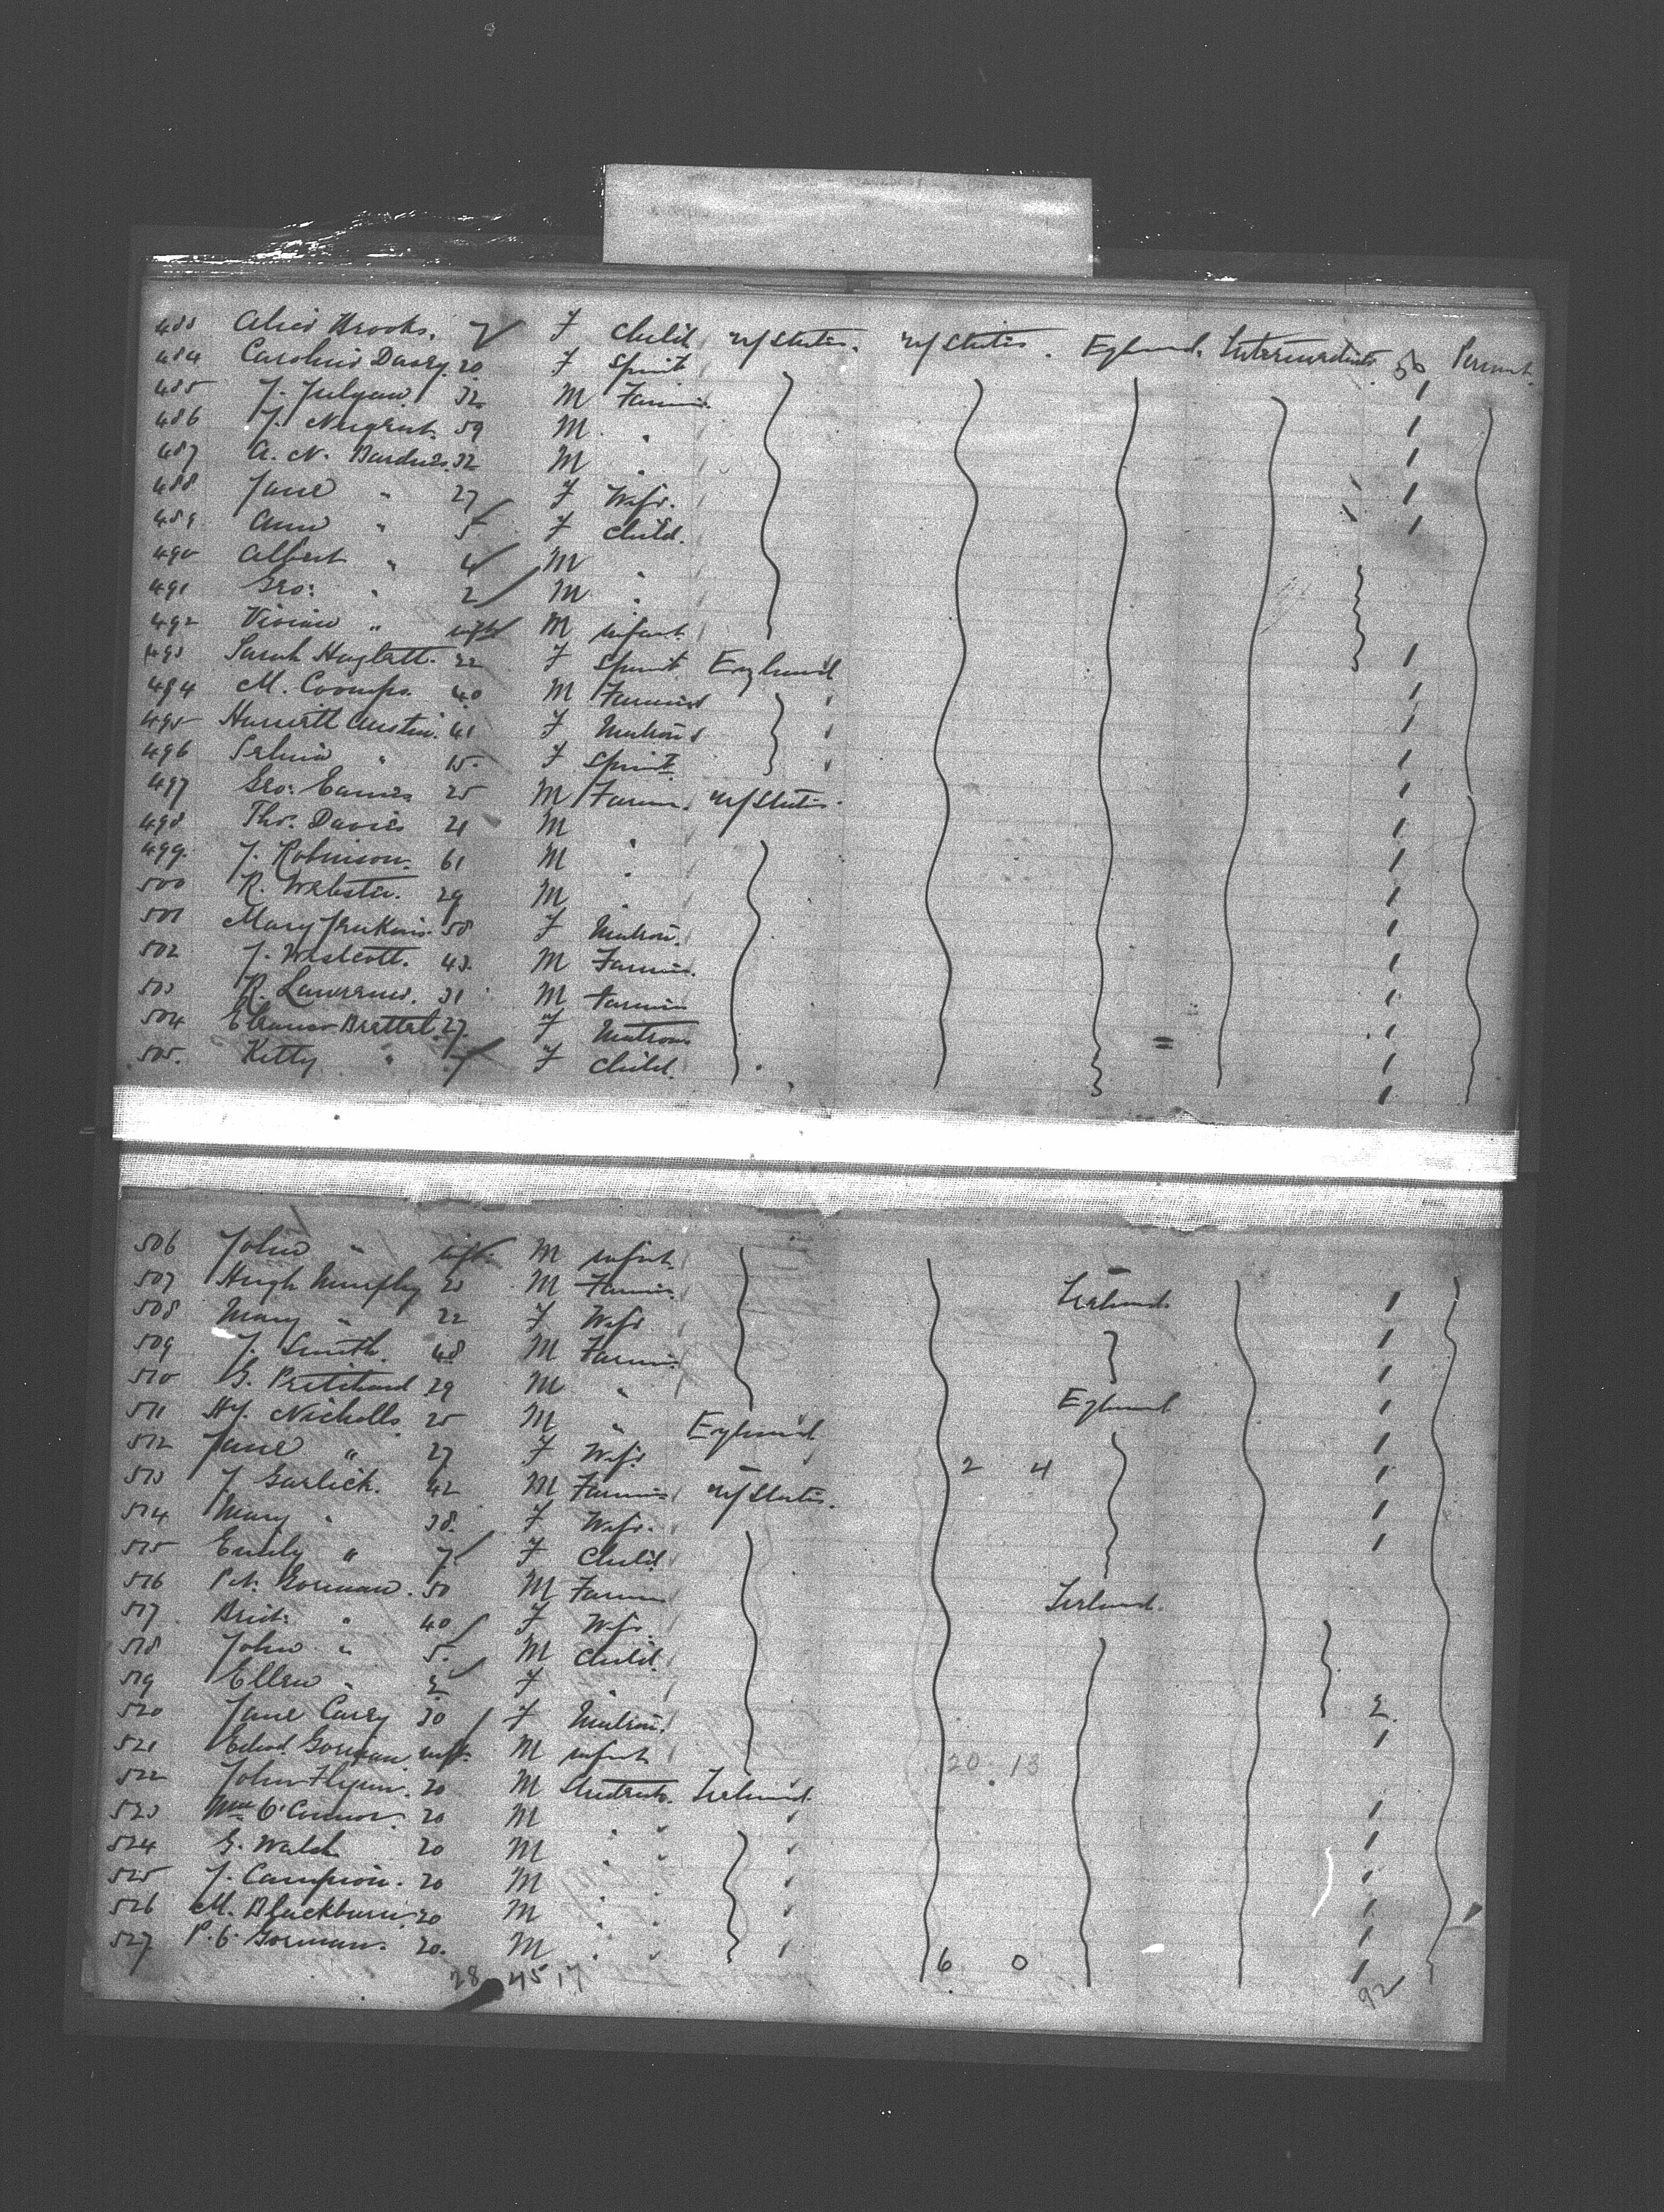 483 Alice Brooks. 7 F Child U/States. U/States. England. Intermediate 50 Permt.
484 Caroline Davey. 20 F Spinst
485 J. Julyan 32 M Farmer
486 J. Nugent. 59 M "
487 A. N. 32 M "
488 Jane " 27 F Wife.
489 Ann " 5 F Child.
490 Albert " 4 M "
491 Geo: " 2 M "
492 Vivian " inft M infant
493 Sarah 22 F Spinst England
494 M. Coombs. 40 M Farmer
495 Harriett Austin. 41 F Matron
496 Selina " 15. F Spinst.
497 Geo: Eames 25 M Farmer. U/States.
498 Thos. Davies 21 M "
499. J. Robinson. 61 M "
500 R. Webster. 29 M "
501 Mary Jenkins. 50 F Matron.
502 J. Westcott. 43. M Farmer.
503 R. Lawrence. 31 M Farmer
504 Eleanor Brettel. 27. F Matron
505. Kitty " 7 F Child.
506 John " inft. M infant.
507 Hugh Murphy 25 M Farmer. Ireland.
508 Mary " 22 F Wife
509 J. Smith. 48 M Farmer
510 G. Pritchard 29 M " England
511 Hy. Nicholls 25 M " England
512 Jane " 27 F Wife 2 4
513 J. Garlick. 42 M Farmer U/States.
514 Mary " 38. F Wife.
515 Emily " 7 F Child
516 Pat. Gorman. 50 M Farmer Ireland.
517 Brid: " 40 F Wife.
518 John " 5. M Child.
519 Ellen " 2 F
520 Jane Carey 30 F Matron. 2.
521 Edwd. Gorman inft. M infant 20. 13
522 John Flynn. 20 M Students. Ireland.
523 Wm O'Connor. 20 M " "
524 G. Walsh 20 M " "
525 J. Campion. 20 M " "
526 M. Blackburn. 20 M " "
527 P. J. Gorman. 20. M " " 6 0
28 45 17 92